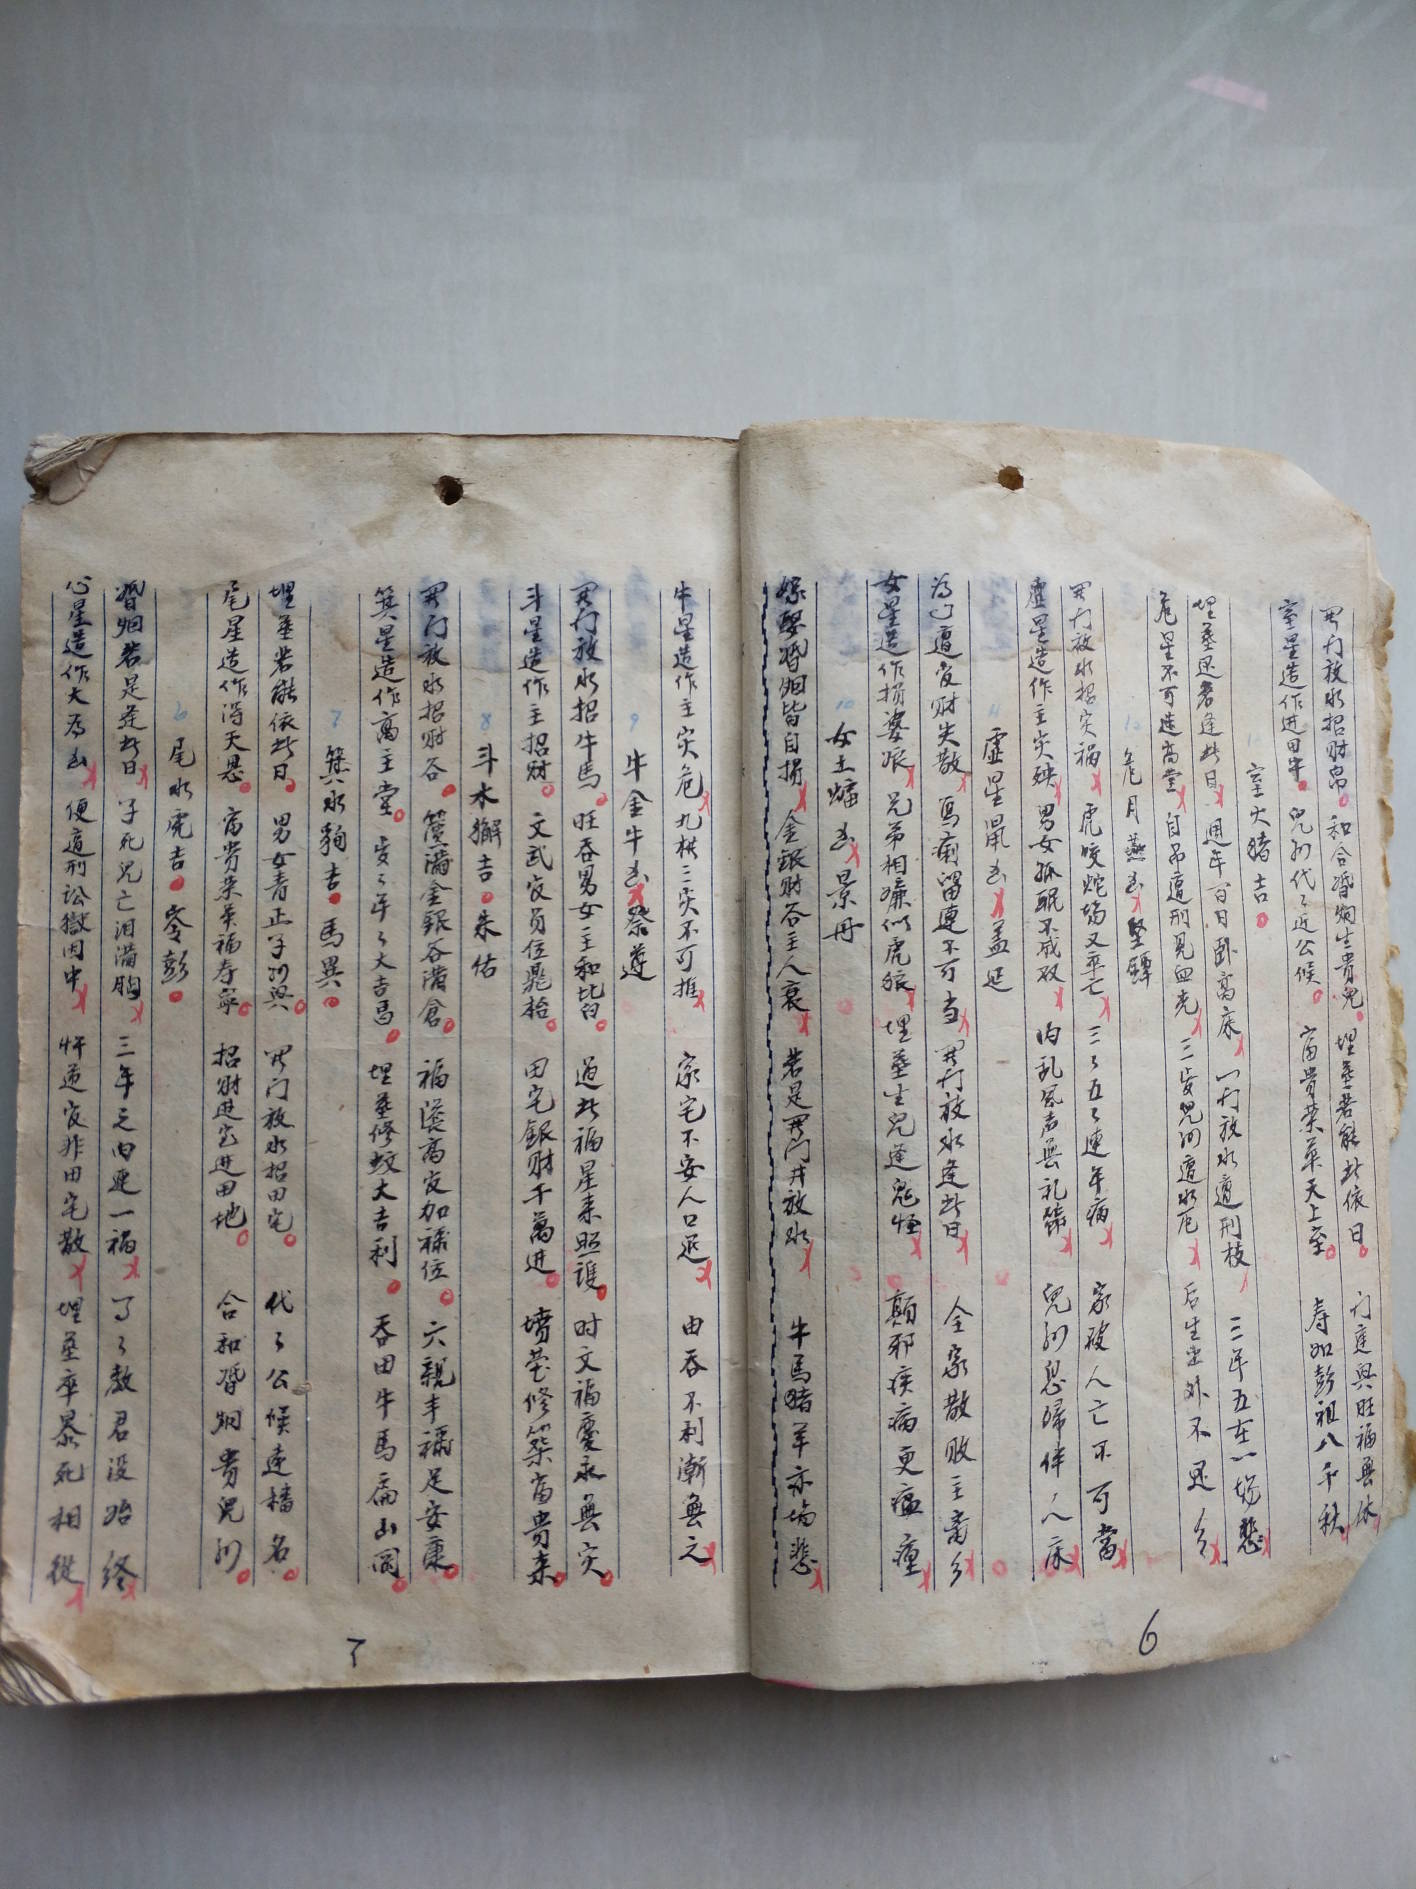 開门放水招財帛 和合婚姻生貴兒 埋葬若能此依日 门庭興旺福無休
室星造作進田牛 兒孙代々近公候 富貴榮華天上至 寿如彭祖八千秋
室火猪吉
埋葬还若逢此日 週年百日卧高床 一门放水遭刑枝 三年五在一場悲
危星不可造高堂 自吊遭刑見血光 三岁兒河遭水厄 后生出外不还乡
12
危月燕凶 堅鐔
開门放水招灾禍 虎咬蛇場又卒亡 三々五々連年病 家破人亡不可當
虛星造作主灾殃 男女孤眠不成双 内乱風声無礼節 兒孙息婦伴人床
11
虛星鼠凶 盖延
為门遭官財失散 馬痢留連不可当 開门放水逢此日 全家散敗主离乡
女星造作損婆娘 兄弟相嫌似虎狼 埋葬生兒逢鬼怪 顛邪疾病更瘟
10
女土蝠凶 景丹
嫁娶婚姻皆自損 金銀財谷主人衰 若是開門并放水 牛馬猪羊亦場悲
6
牛星造作主灾危 九橫三灾不可推 家宅不安人口退 田吞不利漸無之
9
牛金牛凶 祭遵
開门放水招牛馬 旺吞男女主和 過此福星来照護 时文福慶永無灾
斗星造作主招財 文武官員位鼎抬 田宅銀財千萬進 墳茔修築富貴来
8
斗木獬吉 朱佑
開门放水招財谷 篋滿金銀谷满倉 福滿高官加禄位 六親丰禄足安康
箕星造作高主堂 岁々年々大吉昌 埋葬修坟大吉利 吞田牛馬扁山岡
7
箕水豹吉 馬異
埋葬若能依此日 男女青正子孙興 開门放水招田宅 代々公候逺播名
尾星造作得天恩 富貴荣華福寿寧 招財进宝进田地 合和婚姻貴兒孙
6
尾水虎吉 岑彭
婚姻若是逢此日 子死兒亡泪满胸 三年之内連一禍 了々教君没始終
心星造作大为凶 便遭刑訟獄囚中 忤逆官非田宅散 埋葬卒暴死相從
7